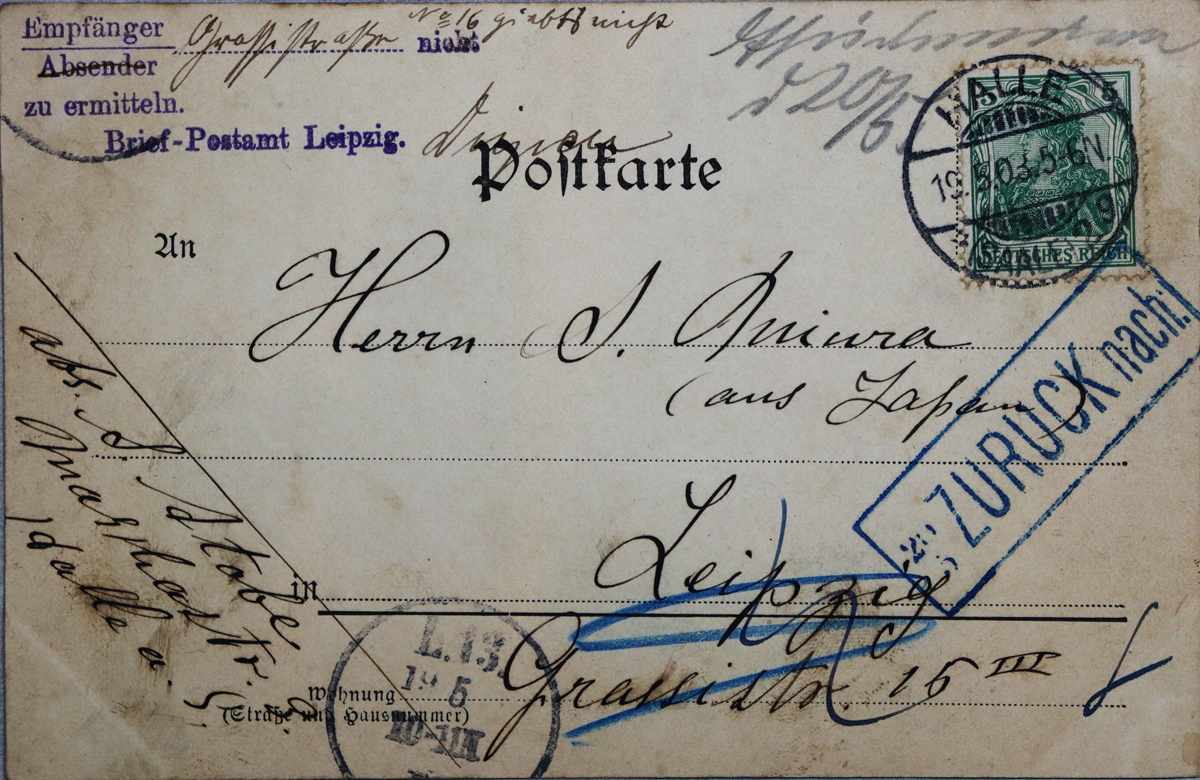 Empfänger Grassistraße No 16 giebts nicht
nicht
Absender
zu ermitteln.
Brief-Postamt Leipzig.
d 20/5
Postkarte
HALLE
19.5.03.5-6N.
(SAALE)
5
5
DEUTSCHES REICH
An
Herrn S. Miura
(aus Japan)
ZURÜCK nach:
20
5
in Leipzig
Grassistr. 15 III
Wohnung
(Straße und Hausnummer)
L.13.
19 5
10-11N
abs. S.
Halle a. S.